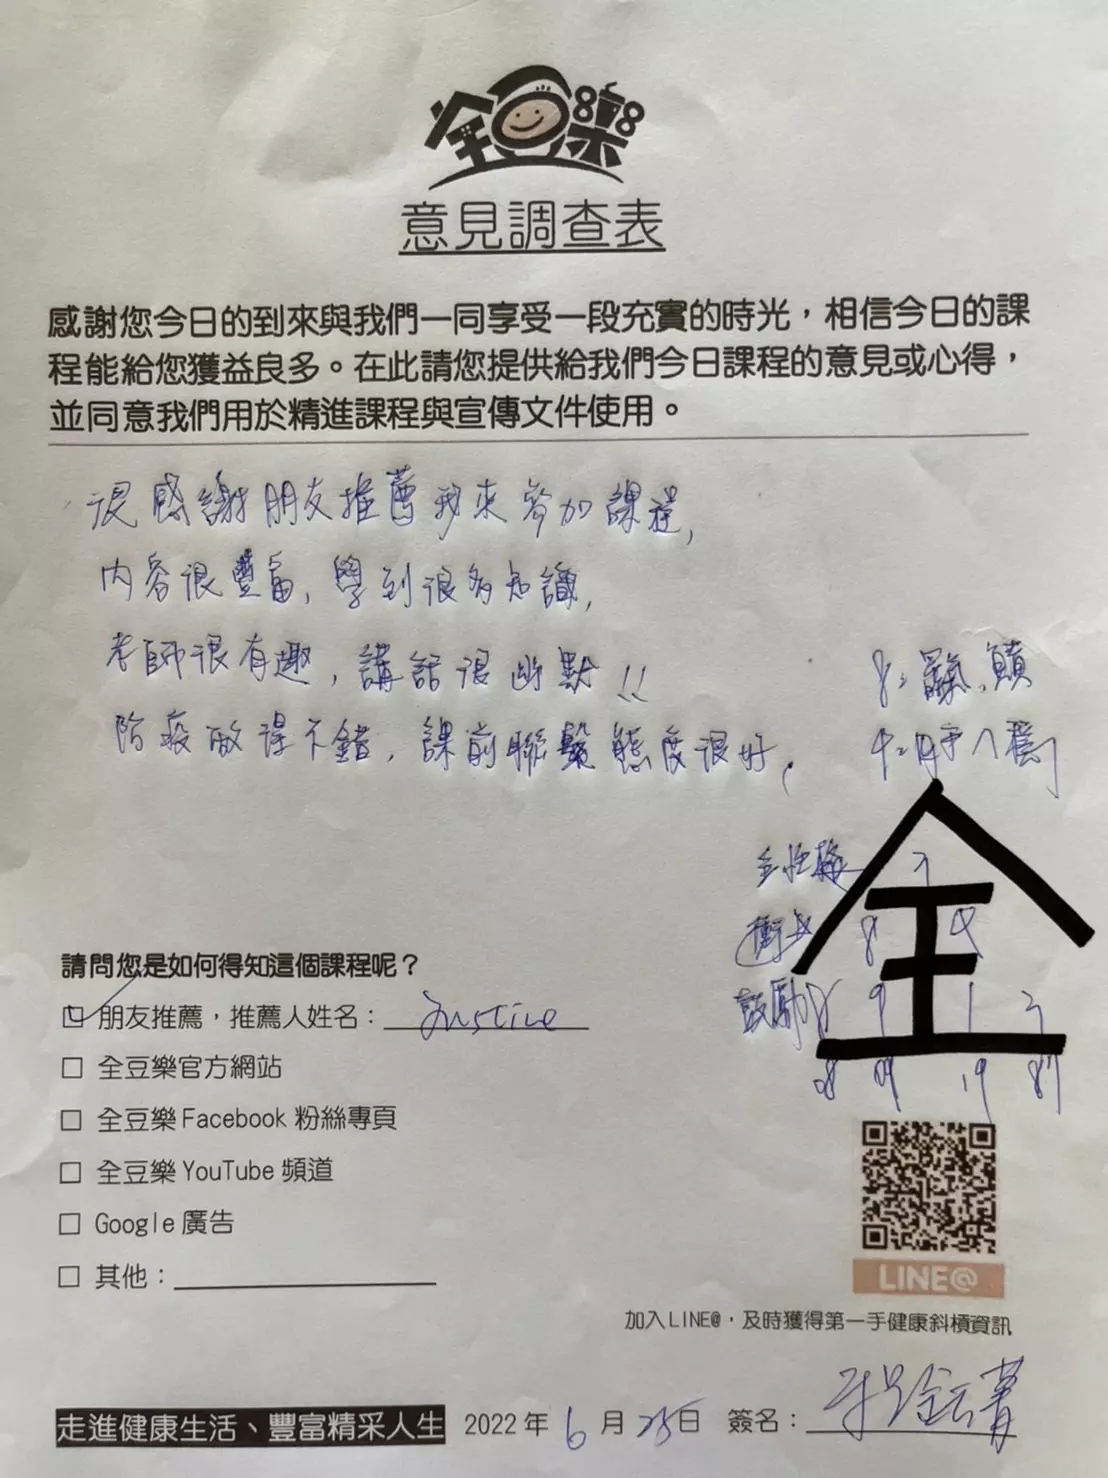 全豆樂
意見調查表
感謝您今日的到來與我們一同享受一段充實的時光，相信今日的課
程能給您獲益良多。在此請您提供給我們今日課程的意見或心得，
並同意我們用於精進課程與宣傳文件使用。
很感謝朋友推薦我來參加課程,
內容很豐富, 學到很多知識,
老師很有趣, 講話很幽默!!
防疫做得不錯, 課前聯繫態度很好.
全
鼓勵
請問您是如何得知這個課程呢？
朋友推薦，推薦人姓名：Justine
全豆樂官方網站
全豆樂 Facebook 粉絲專頁
全豆樂 YouTube 頻道
Google 廣告
其他：
LINE@
加入 LINE@，及時獲得第一手健康斜槓資訊
走進健康生活、豐富精采人生 2022 年 6 月 25 日 簽名：